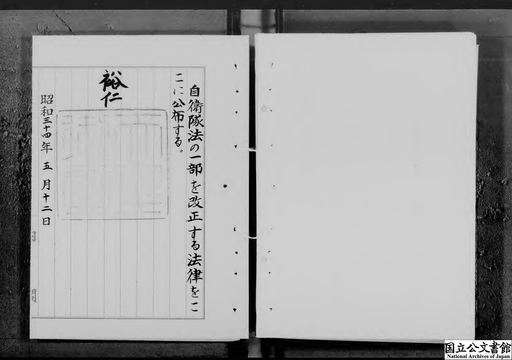 自衛隊法の一部を改正する法律をこ
こに公布する。
裕仁
昭和三十四年五月十二日
国立公文書館
National Archives of Japan